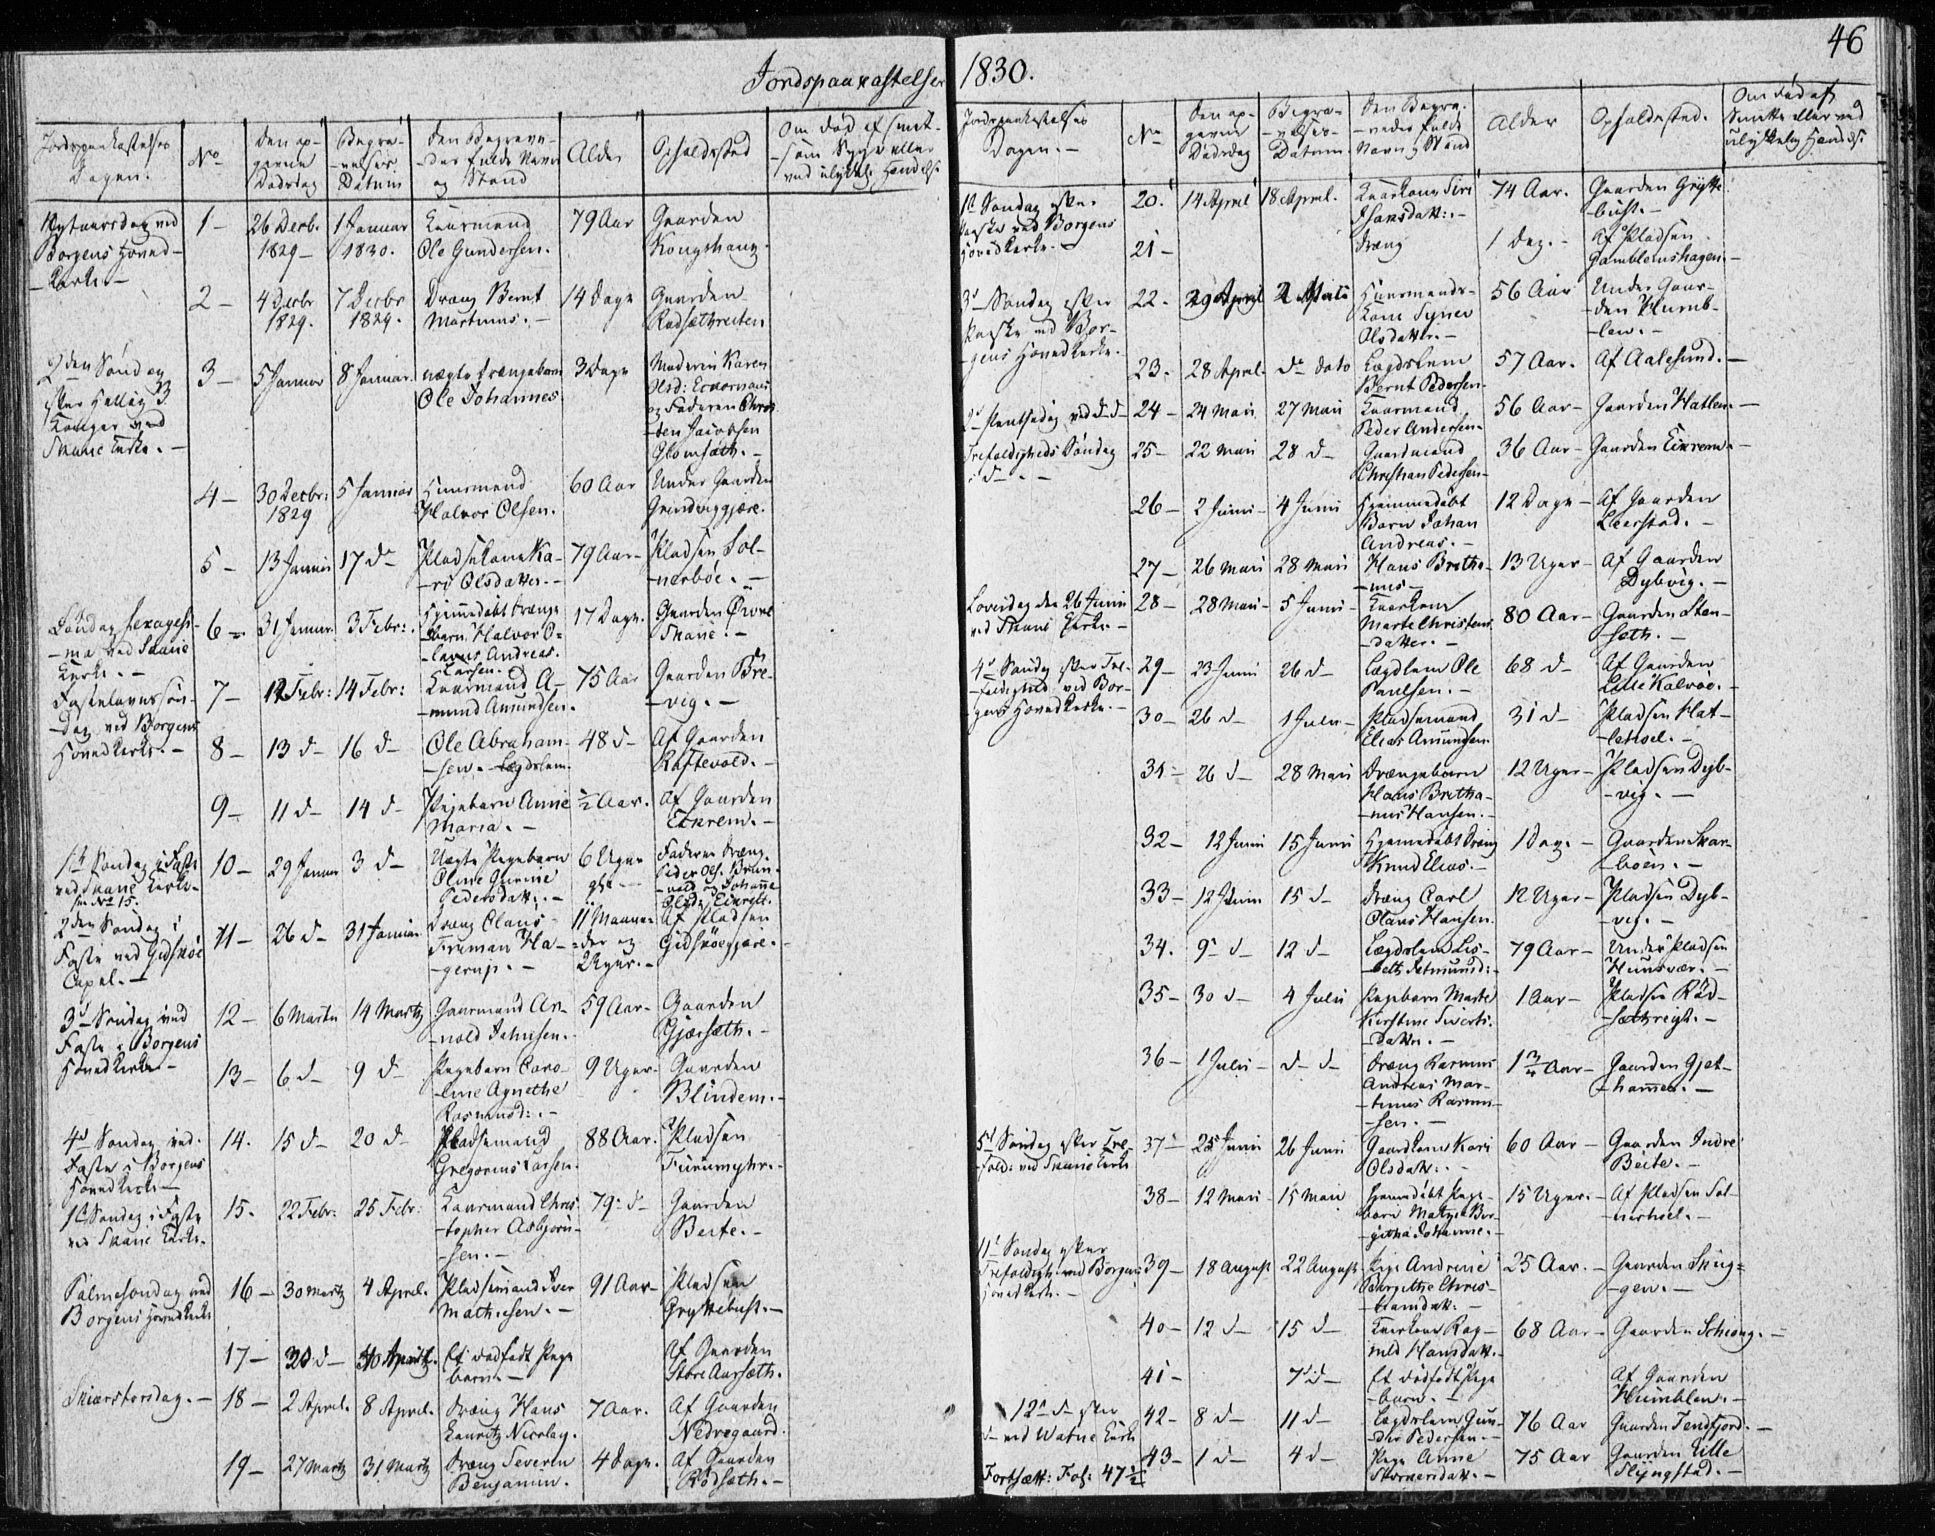 46
Jordspaakastelser 1830.
Jordspaakastelses
Dagen.
No
den op-
givne
Dødsdag
Begra-
velses
Datum
den Begrav-
des fulde Navn
og Stand
Alder
Opholdssted
Om død af smit-
som Syge eller
ved ulykkel. Hendelse
Nytaarsdag ved
Borgens Hoved-
kirke. -
1 -
26 Decb.
1829 -
1 Januar
1830.
Kaarmand
Ole Gundersen.
79 Aar
Gaarden
Kongshaug.
2 -
4 Decbr
1829.
7 Decbr
1829.
Dreng Bernt
Martinus. -
14 Dage
Gaarden
Rødsæthreiten
2den Søndag
efter Hellig 3
Konger ved
Skaue Kirke. -
3 -
5 Januar
8 Januar.
uægte Drengebarn
Ole Johannes
3 Dage
Moderen Karen
Olsd:
og Faderen Chris-
ten Jacobsen
Glomsæth. -
4 -
30 Decbr:
1829
5 Januar
Huusmand
Halvor Olsen.
60 Aar
Under Gaarden
Grindviggjære.
5 -
13 Januar
17 d-
Pladsekone Ka-
ri Olsdatter. -
79 Aar -
Pladsen Sol-
nørbøe. -
Søndag Sexagesi-
ma ved Skaue
Kirke. -
6 -
31 Januar
3 Febr:
Hjemmedøbt Drenge
barn Halvor O-
laus Andreas
Larsen.
17 Dage.
Gaarden Øvre
Skaue. -
Fastelavnssøn-
dag ved Borgens
Hovedkirke. -
7 -
12 Febr:
14 Febr:
Kaarmand A-
mund Amundsen.
75 Aar
Gaarden Bre-
vig. -
8 -
13 d-
16 d-
Ole Abraham-
sen. - Lægdslem.
48 d-
Af Gaarden
Røstevold. -
9 -
11 d-
14 d-
Pigebarn Anne
Maria. -
½ Aar.
Af Gaarden
Eikrem. -
1ste Søndag i Faste
ved Skaue Kirke -
see No 15.
10 -
29 Januar
3 d-
Uægte Pigebarn
Oline Gurine
Pedersdatt: -
6 Uger
Faderen Dreng
Peder Ols. Brun-
vold og Johanne
Olsdr Eikrem.
2den Søndag i
Faste ved Gidskøe
Capel. -
11 -
26 d-
31 Januar
Dreng Claus
Friman Ha-
gerup. -
11 Maane-
der og
2 Uger. -
Af Pladsen
Gidskøegjære. -
3d- Søndag ved
Faste i Borgens
Hovedkirke -
12 -
6 Marts
14 Marts
Gaarmand Ar-
nold Jetmsen. -
59 Aar -
Gaarden
Gjærsæth. -
13 -
6 d-
9 d-
Pigebarn Caro-
line Agnethe
Rasmusd: -
9 Uger -
Gaarden
Blindem. -
4d- Søndag ved
Faste i Borgens
Hovedkirke -
14.
15 d-
20 d-
Pladsemand
Gregorius Larsen.
88 Aar.
Pladsen
Furumyhr. -
1ste Søndag i Faste
ved Skaue Kirke.
15.
22 Febr:
25 Febr:
Kaarmand Chris-
topher Asbjørn-
sen. -
79 d-
Gaarden
Beite. -
Palmesøndag ved
Borgens Hovedkirke
16 -
30 Marts
4 April.
Pladsemand Iver
Mathiesen. -
91 Aar -
Pladsen
Gryttebust. -
17 -
30 d-
Et dødfødt Pige
barn. -
Af Gaarden
Store Aarsæth. -
Skiærtorsdag. -
18 -
2 April.
8 April.
Dreng Hans
Lauritz Nicolay.
7 Aar.
Af Gaarden
Nedregaard.
19 -
27 Marts
31 Marts
Dreng Severin
Benjamin.
4 Dage.
Af Gaarden
Rødsæth. -
Jordspaakastelses
Dagen. -
No
den op-
givne
Dødsdag
Begra-
velses-
Datum
den Begra-
vedes fulde
Navn og Stand
Alder
Opholdssted.
Om død af
Smitte eller ved
ulykkelig Hendelse
1ste Søndag efter
Paaske ved Borgens
Hovedkirke. -
20.
14 April
18 April.
Kaarkone Siri
Hansdatt: -
74 Aar.
Gaarden Grytte-
bust. -
21 -
Dreng
1 Dag. -
Af Pladsen
Gamblemshagen. -
3d Søndag efter
Paaske ved Bor-
gens Hovedkirke.
22.
29 April
Huusmands-
kone Synev
Olsdatter. -
56 Aar
Under Gaar-
den Humb-
len. -
23.
28 April.
d- dato
Lægdslem
Bernt Pedersen.
57 Aar.
Af Aalesund. -
2d Pintsedag ved d- d-
24 -
24 Mai.
27 Mai
Kaarmand
Peder Andersen.
56 Aar -
Gaarden Hatlen. -
Trefoldigheds Søndag
i d- -
25 -
22 Mai
28 d-
Gaardmand
Christian Pedersen -
36 Aar -
Gaarden Eikrem. -
26 -
2 Juni -
4 Juni
Hjemmedøbt
Barn Johan
Andreas. -
12 Dage -
Af Gaarden
Leerstad. -
27 -
26 Mai
28 Mai
Hans Britha-
nus -
13 Uger -
Af Gaarden
Dybvig. -
Løverdag den 26 Juni
ved Skaue Kirke -
28 -
28 Mai -
5 Juni -
Kaarkone
Marte Christens
datter. -
80 Aar -
Gaarden Sten-
seth. -
4d Søndag efter Tre-
foldighed ved Bor-
gens Hovedkirke. -
29 -
23 Juni
26 d-
Lægdslem Ole
Paulsen. -
68 d-
Af Gaarden
Lille Kalvøe. -
30 -
26 d-
1 Julii -
Pladsemand
Elias Amundsen.
31 d-
Pladsen Hat-
lehoel. -
31 -
26 d-
28 Mai
Drengebarn
Hans Britha-
nus Hansen. -
12 Uger -
Pladsen Dyb-
vig. -
32 -
12 Juni
15 Juni
Hjemmedøbt Dreng
Knud Elias. -
1 Dag. -
Gaarden Skar-
boen. -
33 -
12 Juni
15 d-
Dreng Carl
Olaus Hansen.
12 Uger -
Pladsen Dyb-
vig. -
34.
9 d-
12 d-
Lægdslem Lis-
beth Jetmundd: -
79 Aar -
Under Pladsen
Hunsvær. -
35 -
30 d-
4 Julii
Pigebarn Marte
Kirstine Siverts-
datter. -
1 Aar -
Pladsen Rød-
sæthreyt. -
36 -
1 Julii -
d- d-
Dreng Rasmus
Andreas Mar-
tinus Rasmu-
sen. -
1¾ Aar -
Gaarden Gjet-
hammer. -
5te Søndag efter Tre-
fold: ved Skaue Kirke
37 -
25 Juni
26 Juni
Gaardkone Kari
Olsdatt: -
60 Aar -
Gaarden Indre
Beite. -
38 -
12 Mai -
15 Mai
Hjemedøbt Pige-
barn Martha Ber-
githa Johanne. -
15 Uger. -
Af Pladsen Sol-
nørhoel. -
11te Søndag efter
Trefoldigh. ved Borgens
Hovedkirke. -
39 -
18 August
22 August
Pige Andrine
Bergithe Chris-
tiansdatt: -
25 Aar. -
Gaarden Skug-
gen. -
40 -
12 d-
15 d-
Kaarkone Rag-
nild Hansdatt. -
68 Aar -
Gaarden Schiong. -
41 -
7 d-
Et dødfødt Pige
barn. -
Af Gaarden
Humblen. -
12te d- efter
d- ved Watne Kirke
42 -
8 d-
11 d-
Lægdslem Gun-
der Pedersen. -
76 Aar
Gaarden Tenfjord. -
43 -
1 d-
4 d-
Pige Anne
75 Aar
Gaarden Lille
Slyngstad. -
Fortsætt: Fol: 47½